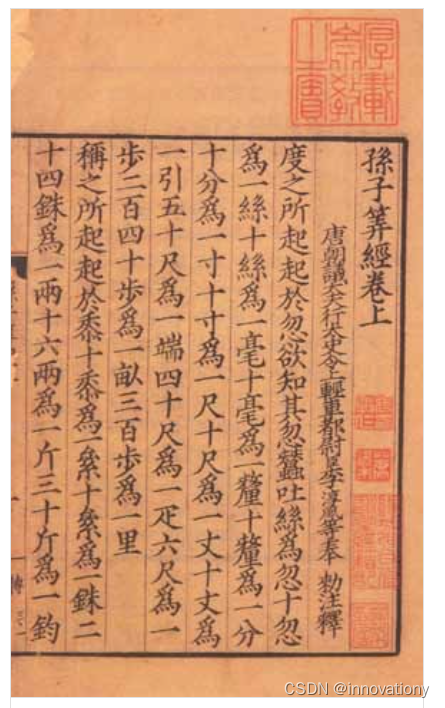 孫子筭經卷上
唐朝議大夫行太史令上輕車都尉臣李淳風等奉 勅注釋
度之所起起於忽欲知其忽蠶吐絲爲忽十忽
爲一絲十絲爲一毫十毫爲一釐十釐爲一分
十分爲一寸十寸爲一尺十尺爲一丈十丈爲
一引五十尺爲一端四十尺爲一疋六尺爲一
歩二百四十歩爲一畝三百歩爲一里
稱之所起起於黍十黍爲一絫十絫爲一銖二
十四銖爲一兩十六兩爲一斤三十斤爲一鈞
CSDN @innovationy